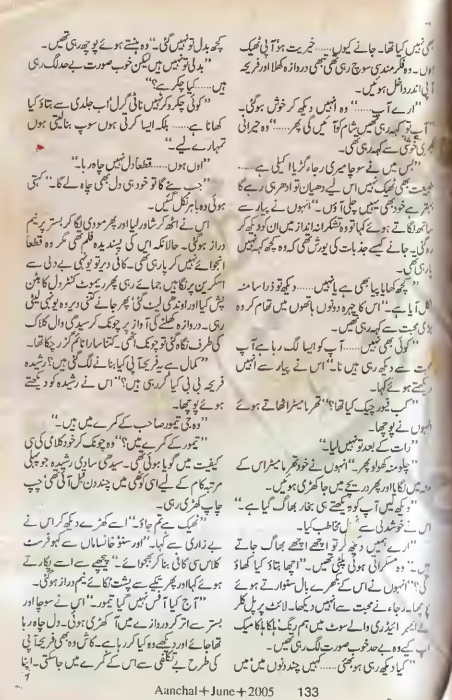 بھی نہیں کیا تھا۔ جانے کیوں...... خیریت ہو؟ آپی ٹھیک
ہوں۔ وہ فکر مندی سے سوچ رہی تھی تبھی دروازہ کھلا اور فریحہ
آپی اندر داخل ہوئیں۔
”ارے آپ......“ وہ انہیں دیکھ کر خوش ہوگئی۔
”آپ تو کہہ رہی تھیں شام کو آئیں گی پھر......“ وہ حیرانی
بھری خوشی سے کہہ رہی تھی۔
”بس میں نے سوچا میری رجاء گڑیا اکیلی ہے......
طبیعت بھی ٹھیک نہیں اس لیے دھیان تو ادھر ہی رہے گا
بہتر ہے خود بھی یہیں چلی آؤں۔“ انہوں نے پیار سے
ساتھ لگاتے ہوئے کہا تو وہ تشکرانہ انداز میں ان کو دیکھ کر
رہ گئی۔ جانے کیسے جذبات کی یورش تھی کہ وہ کچھ کہہ نہیں
پا رہی تھی۔
”کچھ کھایا پیا بھی ہے یا نہیں...... دیکھو تو ذرا سا منہ
نکل آیا ہے۔“ اس کا چہرہ دونوں ہاتھوں میں تھام کر وہ
بڑی محبت سے کہہ رہی تھیں۔
”کوئی بھی نہیں...... آپ کو ایسا لگ رہا ہے آپ
محبت سے دیکھ رہی ہیں نا۔“ اس نے پیار سے انہیں
دیکھتے ہوئے کہا۔
”کب فیور چیک کیا تھا؟“ تھرمامیٹر اٹھاتے ہوئے
انہوں نے پوچھا۔
”رات کے بعد تو نہیں لیا۔“
”چلو منہ کھولو پھر۔“ انہوں نے خود تھرمامیٹر اس کے
منہ میں لگایا اور پھر دریچے میں جا کھڑی ہوئیں۔
”دیکھیں آپ کو دیکھتے ہی بخار بھاگ گیا ہے۔“
اس نے خوشدلی سے مخاطب کیا۔
”ارے ہمیں دیکھ کر تو اچھے اچھے بھاگ جاتے
ہیں۔“ وہ مسکراتی ہوئی پلٹی تھیں۔ ”اچھا بتاؤ کیا کھاؤ
گی؟“ انہوں نے اس کے بکھرے بال سنوارتے ہوئے
پوچھا۔ رجاء نے محبت سے انہیں دیکھا۔ لائٹ پرپل کلر
کے ایمبرائیڈری والے سوٹ میں ہم رنگ ہلکا ہلکا میک
اپ کیے وہ بے حد خوب صورت لگ رہی تھیں۔
”کیا دیکھ رہی ہو بھئی...... کہیں چند دنوں میں میں
کچھ بدل تو نہیں گئی۔“ وہ ہنستے ہوئے پوچھ رہی تھیں۔
”بدلی تو نہیں ہیں لیکن خوب صورت بے حد لگ رہی
ہیں...... کیا چکر ہے؟“
”کوئی چکر وکر نہیں ناٹی گرل اب جلدی سے بتاؤ کیا
کھانا ہے...... بلکہ ایسا کرتی ہوں سوپ بنا لیتی ہوں
تمہارے لیے۔“
”اوں ہوں...... قطعاً دل نہیں چاہ رہا۔“
”جب بنے گا تو خود ہی دل بھی چاہ لے گا۔“ کہتی
ہوئی وہ باہر نکل گئیں۔
اس نے اٹھ کر شاور لیا اور پھر مووی لگا کر بستر پر نیم
دراز ہوگئی۔ حالانکہ اس کی پسندیدہ فلم تھی مگر وہ قطعاً
انجوائے نہیں کر پا رہی تھی۔ کافی دیر تو یونہی بے دلی سے
اسکرین پر نگاہیں جمائے رہی پھر ریموٹ کنٹرول کا بٹن
پش کیا اور اوندھی لیٹ گئی۔ پھر جانے کتنی دیر وہ یونہی لیٹی
رہی۔ دروازہ کھلنے کی آواز پر چونک کر سیدھی وال کلاک
کی طرف نگاہ گئی تو چونک اٹھی۔ کتنا سارا ٹائم گزر چکا تھا۔
”کمال ہے یہ فریحہ آپی کیا بنانے لگ گئی ہیں؟ رشیدہ
فریحہ بی بی کیا کر رہی ہیں؟“ اس نے رشیدہ کو دیکھتے
ہوئے پوچھا۔
”وہ جی تیمور صاحب کے کمرے میں ہیں۔“
”تیمور کے کمرے میں؟“ وہ چونک کر خود کلامی کی سی
کیفیت میں گویا ہوئی تھی۔ سیدھی سادی رشیدہ جو پہلی
مرتبہ کام کے لیے اس کوٹھی میں چند دن قبل آئی تھی چپ
چاپ کھڑی رہی۔
”ٹھیک ہے تم جاؤ۔“ اسے کھڑے دیکھ کر اس نے
بے زاری سے کہا۔ ”اور سنو خانساماں سے کہو فرسٹ
کلاس سی کافی بنا کر بھجوائے۔“ پیچھے سے اسے پکارتے
ہوئے کہا اور پھر تکیے سے پشت ٹکائے نیم دراز ہوگئی۔
”آج کیا آفس نہیں گیا تیمور۔“ اس نے سوچا اور
بستر سے اتر کر دروازے میں آ کھڑی ہوئی۔ دل چاہ رہا
تھا جائے اور دیکھے وہ کیا کر رہا ہے۔ کاش وہ بھی فریحہ آپی
کی طرح بے تکلفی سے اس کے کمرے میں جا سکتی۔ اپنا
Aanchal+June+2005 133